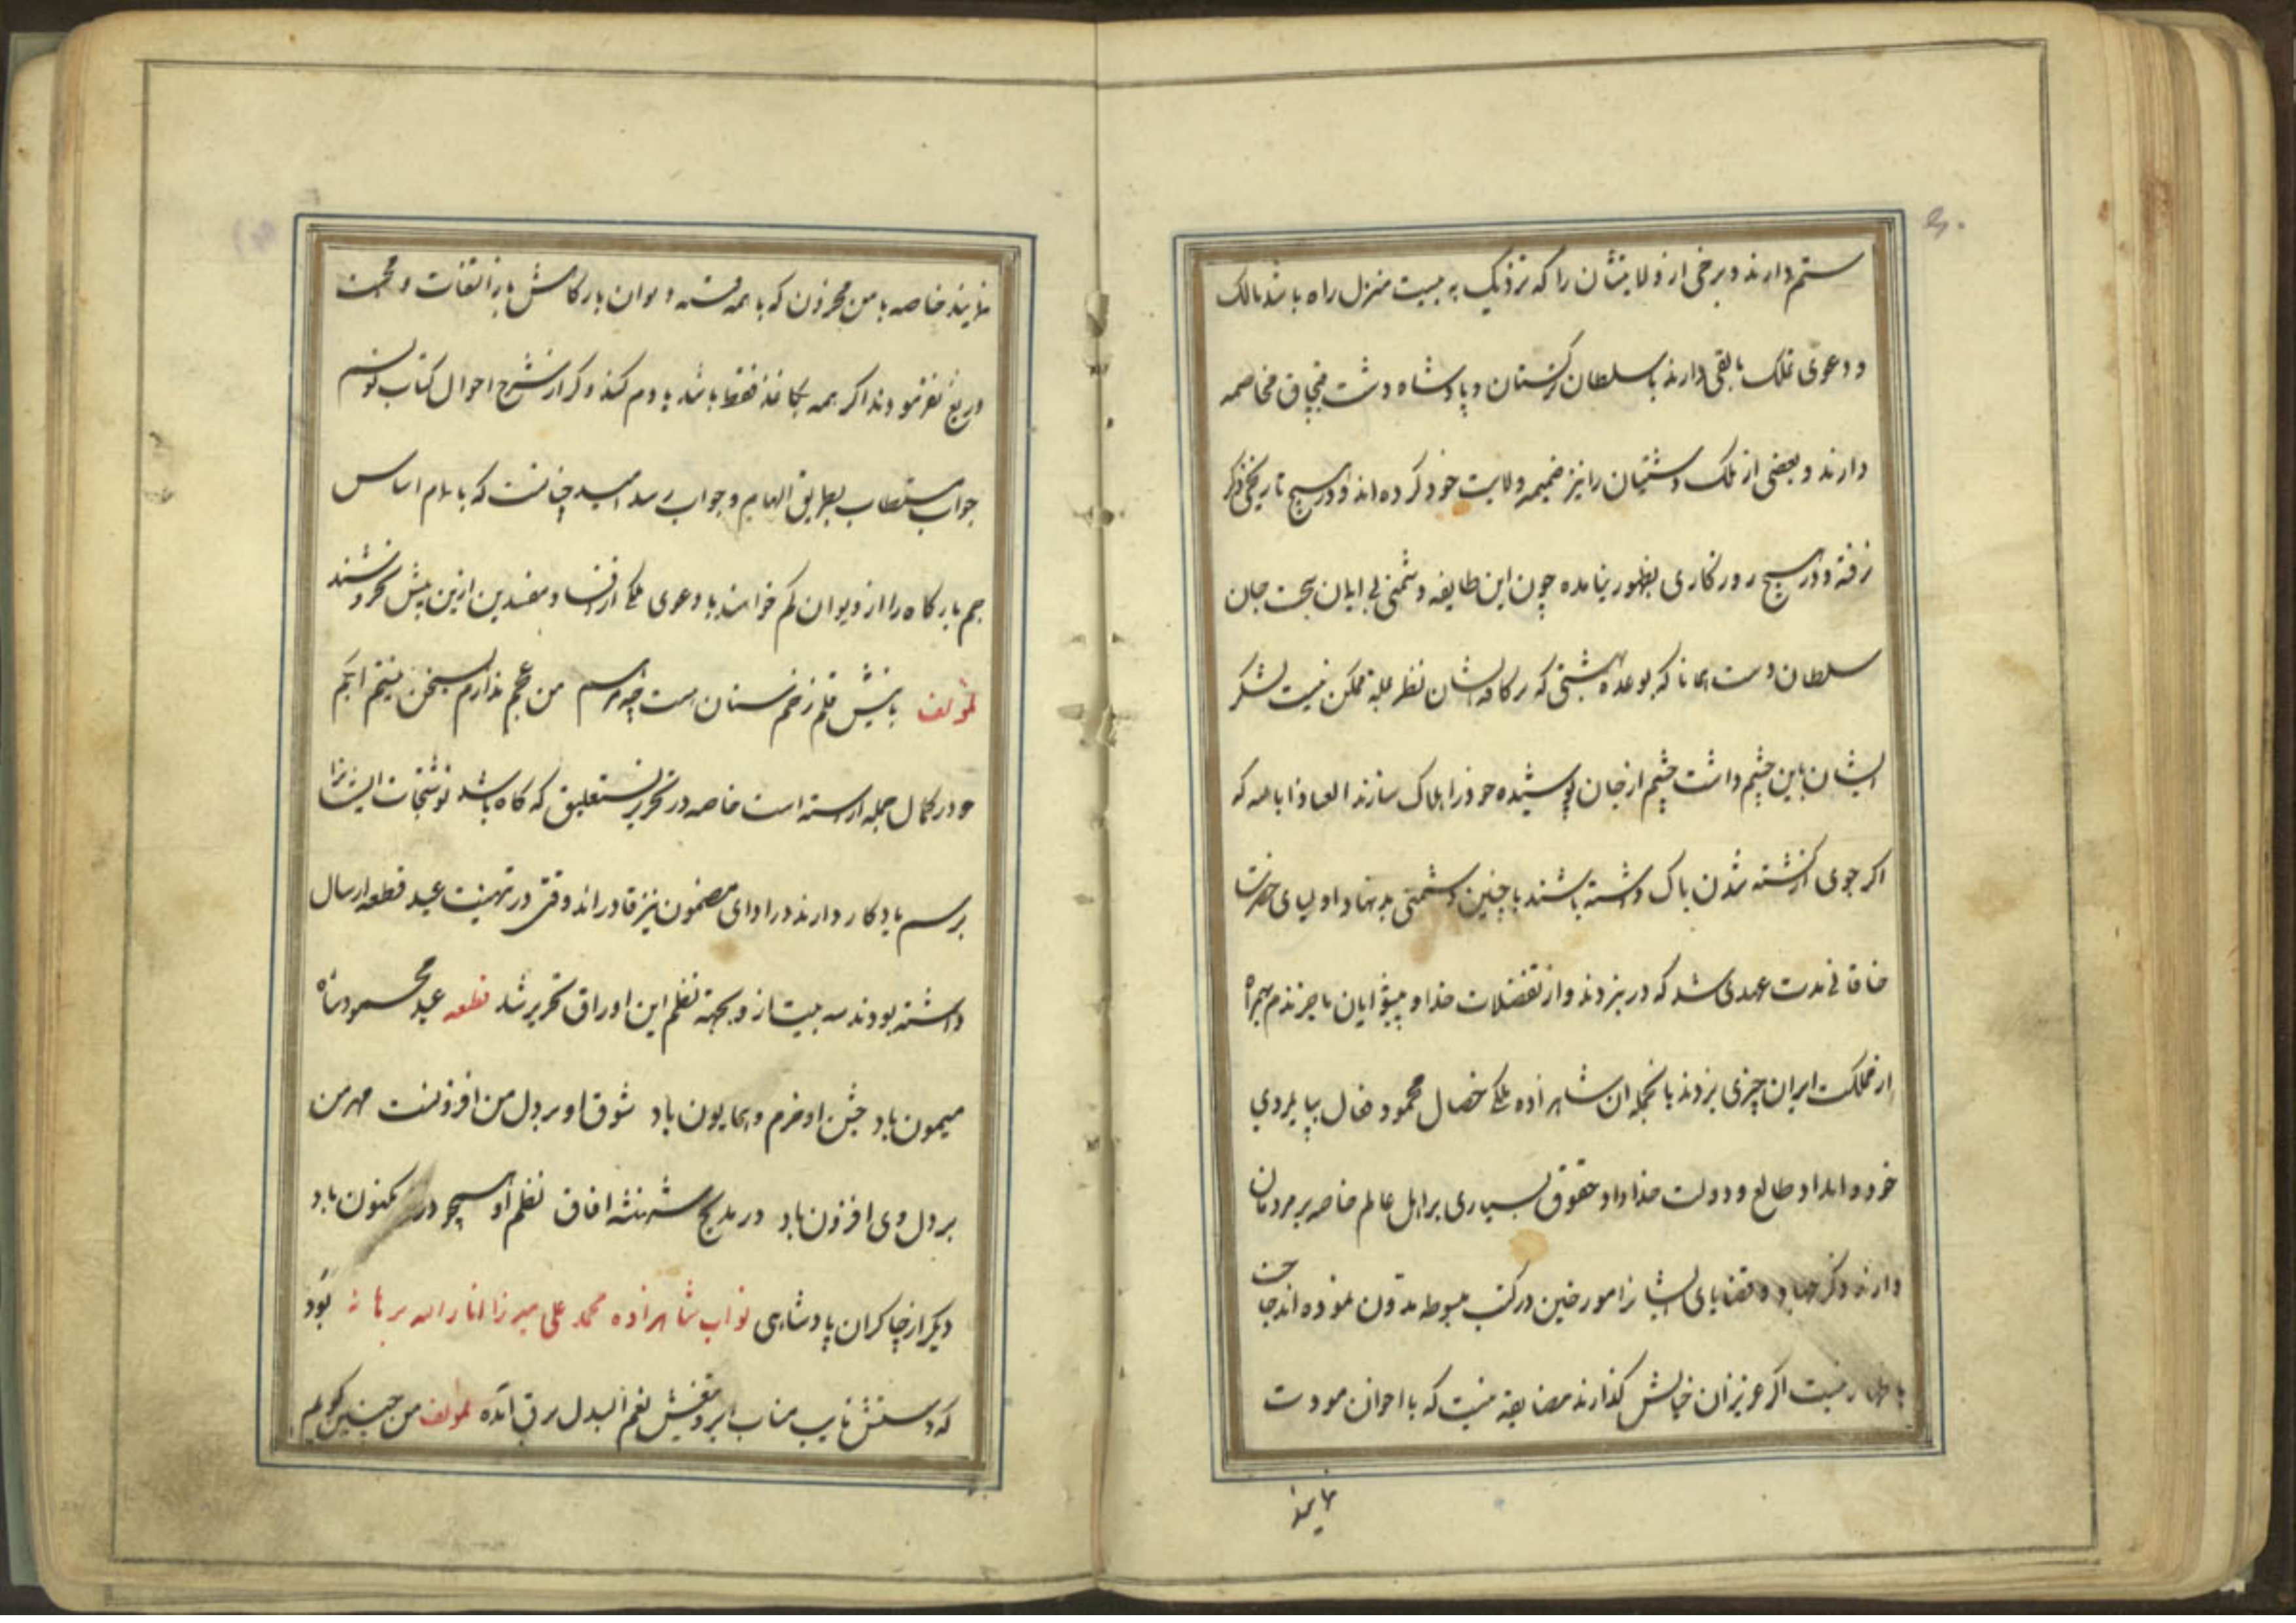 ستم دارند و برخی از ولایتشان را که نزدیک به بیست منزل راه باشد مالک
و دعوی تملک مابقی دارند با سلطان ترکستان و پادشاه دشت قبچاق مخاصمه
دارند و بعضی از ملک دشتیان را نیز ضمیمه ولایت خود کرده اند و در هیچ تاریخی ذکر
نرفته و در هیچ روزگاری بظهور نیامده چون این طایفه دشمنی بی ایمان سخت جان
سلطان دست همانا که بوعده بهشتی که رکافه ایشان نظر غلبه ممکن نیست لشکر
ایشان باین چشم داشت چشم از جان پوشیده خود را هلاک سازند العیاذ بالله که
اگر جوی از کشته شدن باک داشته باشند با چنین دشمنی بدنهاد اولیای حضرت
خاقانی مدت عهدی شد که در نبردند و از تفضلات خدا و پیشوایان ما چیزند هم
از مملکت ایران چیزی بردند بالجمله ان شاهزاده ملک خصال محمود فعال بپایمردی
خرد و امداد طالع و دولت خداداد حقوق بسیاری بر اهل عالم خاصه بر مردمان
دارند ذکر جهاد و قضایای ایشان را مورخین در کتب مبسوط مدون نموده اند حاجت
باظهار نیست اگر عزیزان خیالش گذارند مضایقه نیست که با اخوان مودت
نمایند
نمایند خاصه با من محزون که با همه دیوان بارگاهش بار التفات و محبت
دریغ نفرمودند اگر همه بکاغذ فقط باشد یادم کنند و گر از شرح احوال کتاب نویسم
جواب مستطاب بطریق الهام و جواب رسد امید چنانست که بانام اساس
جم بارگاه را از دیوان کم خواهند با دعوی ملک از فساد مفسدین ازین پیش محروم نشدند
لمؤلفه با نیش قلم زخم ستان هست چه پرسم من عجم ندارم سخن نیتم ابکم
و در کمال جمله آراسته است خاصه در تحریر نستعلیق که گاه باشد نوشتجات ایشانرا
برسم یادکار دارند در ادای مضمون نیز قادراند وقتی در تهنیت عید قطعه ارسال
داشته بودند سه بیت از و بجهته نظم این اوراق تحریر شد قطعه عید محمود شاه
میمون باد جشن او خرم و همایون باد شوق او بر دل من افزونست مهر من
بر دل وی افزون باد در مدیح شهنشه افاق نظم او همچو در مکنون باد
دیگر از چاکران پادشاهی نواب شاهزاده محمد علی میرزا انار الله برهانه بود
که دستش نایب مناب ابر و تیغش نعم البدل برق آمده لمؤلفه من چنین گویم